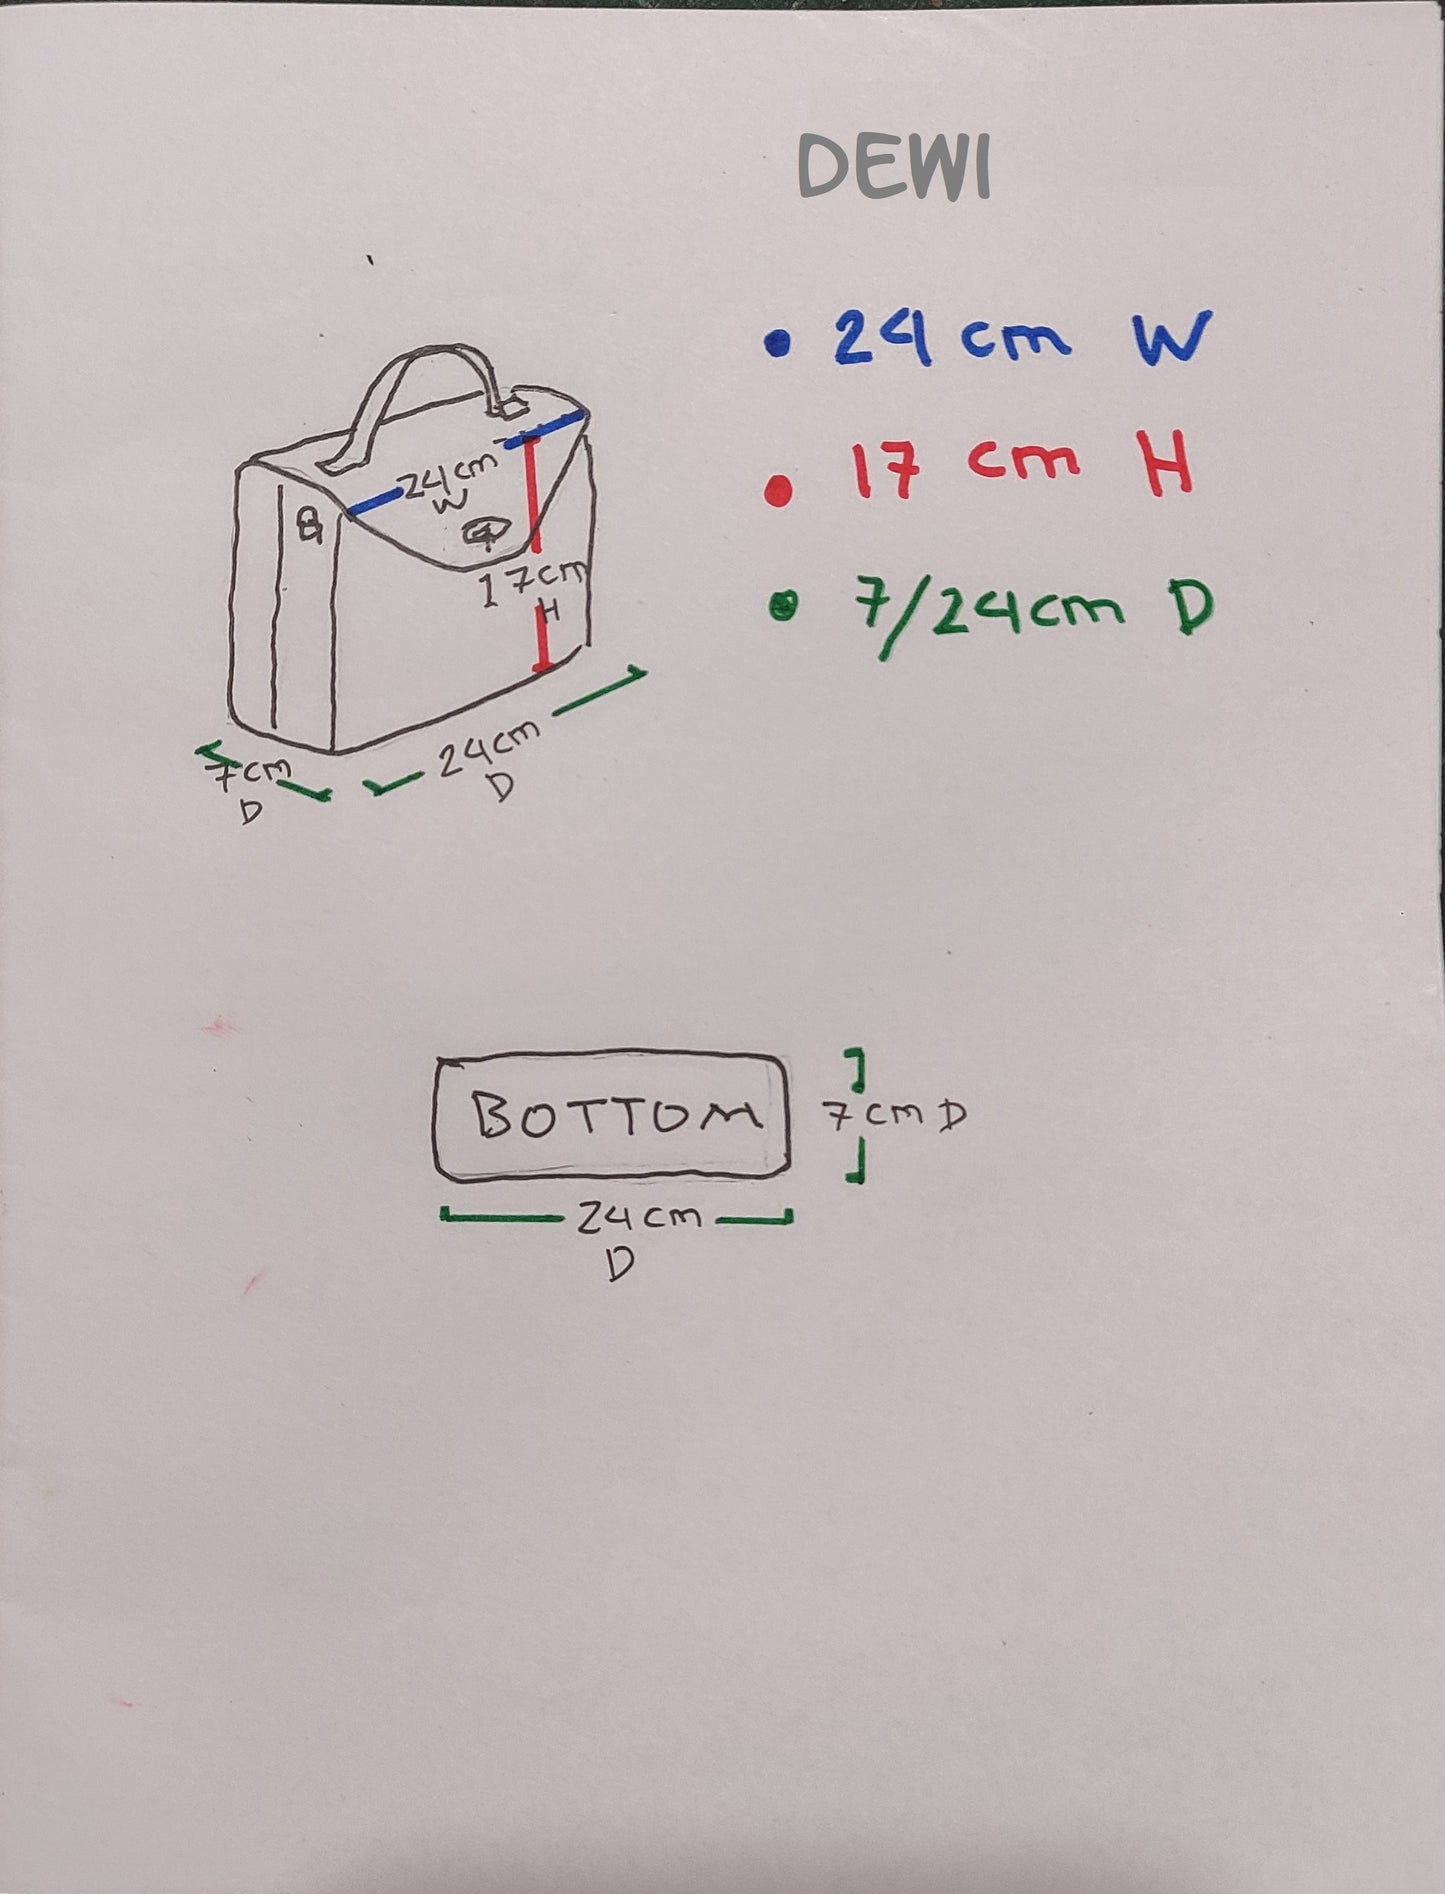 DEWI
• 24 cm W
• 17 cm H
• 7/24cm D
24cm
W
17cm
H
24cm
D
7cm
D
BOTTOM
7cm D
24cm
D